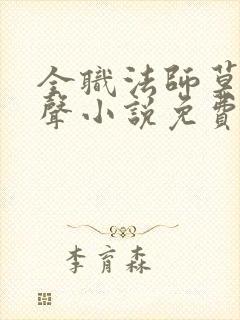 全職法師莫
聲小說免費
李育森